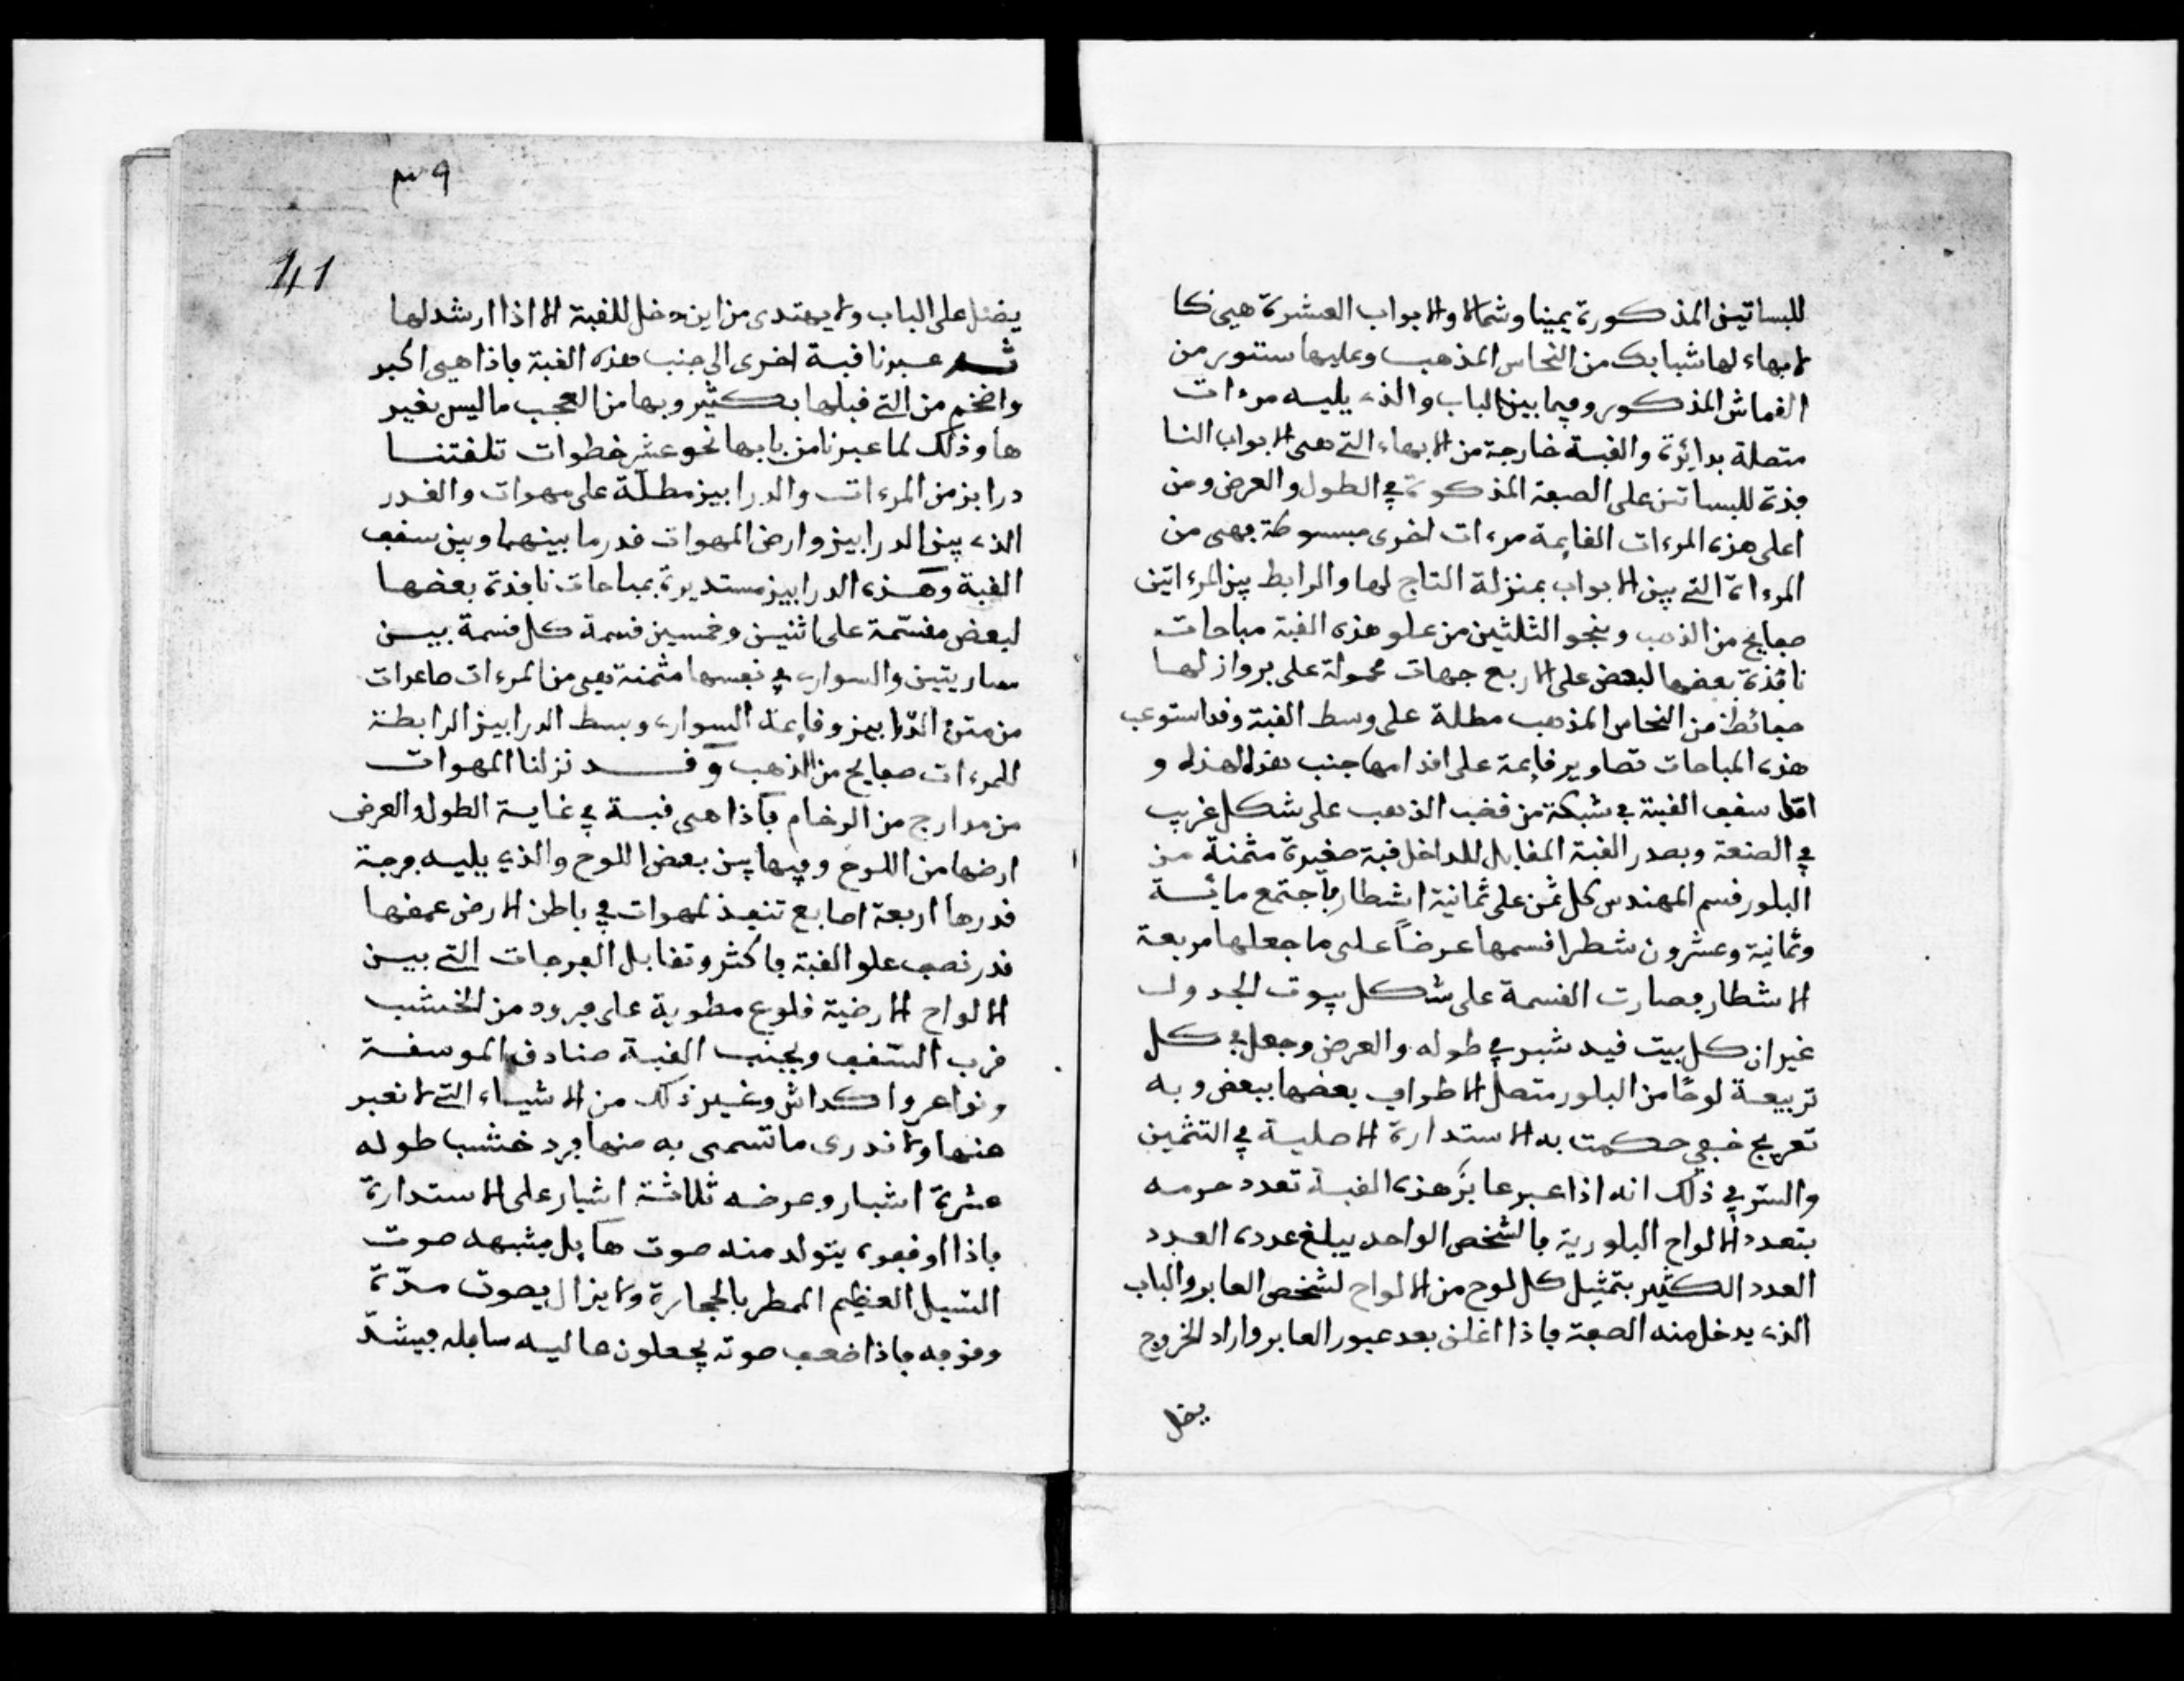 للبساتين المذكورة يمينا وشمالا والابواب العشرة هي كا
لابهاء لها شبابك من النحاس المذهب وعليها ستور من
القماش المذكور وفيما بين الباب والذي يليه مرءات
متصلة بدائرة والقبة خارجة من الابهاء التي هي الابواب النا
فذة للبساتن على الصفة المذكوة في الطول والعرض ومن
اعلى هذه المرءات القايمة مرءات اخرى مبسوطة فهي من
المرءاة التي بين الابواب بمنزلة التاج لها والرابط بين المرءاتين
صفايح من الذهب وبنحو الثلثين من علو هذه القبة مباحات
نافذة بعضها لبعض على الاربع جهات محمولة على برواز لها
من النحاس المذهب مطلة على وسط القبة وقد استوعب
هذه المباحات تصاوير قايمة على اقدامها جنب هذا لهذا و
امّا سقف القبة في شبكة من قضب الذهب على شكل غريب
في الصنعة وبصدر القبة المقابل للداخل قبة صغيرة مثمنة من
البلور قسم المهندس كل ثمن على ثمانية اشطار فاجتمع مائة
وثمانية وعشرون شطرا قسمها عرضاً على ما جعلها مربعة
الاشطار فصارت القسمة على شكل بيوت الجدول
غير ان كل بيت فيه شبر في طوله والعرض وجعل في كل
تربيعة لوحًا من البلور متصل الاطراف بعضها ببعض وبه
تعريج خفي حكمت به الاستدارة الاصلية في التثمين
والسّر في ذلك انه اذا عبر عابرٌ هذه القبة تعدد جرمه
بتعدد الالواح البلورية فالشخص الواحد يبلغ عدده العدد
العدد الكثير بتمثيل كل لوح من الالواح لشخص العابر والباب
الذي يدخل منه الصفة فاذا اغلق بعد عبور العابر واراد الخروج
يضل
٣٩
41
يضل على الباب ولا يهتدى من اين دخل للقبة الا اذا ارشد لها
ثم عبرنا قبة اخرى الى جنب هذه القبة فاذا هي اكبر
واضخم من التي قبلها بكثير وبها من العجب ما ليس بغير
ها وذلك لما عبرنا من بابها نحو عشر خطوات تلقتنا
درابز من المرءات والدرابيز مطلّة على مهوات والقدر
الذي بين الدرابيز وارض المهوات قدر ما بينهما وبين سقف
القبة وهذه الدرابيز مستديرة بمباحات نافذة بعضها
لبعض مقسّمة على اثنين وخمسين قسمة كل قسمة بين
ساريتين والسواري في نفسها مثمنة فهي من المرءات صاعدات
من متن الدّرابيز وقايمة السواري وبسط الدرابيز الرابطة
للمرءات صفايح من الذهب وقد نزلنا المهوات
من مدارج من الرخام فاذا هي قبة في غاية الطول والعرض
ارضها من اللوح وفيها بين بعض اللوح والذي يليه فرجة
قدرها اربعة اصابع تنفذ لمهوات في باطن الارض عمقها
قدر نصف علو القبة فاكثر وتقابل الفرجات التي بين
الالواح الارضية قلوع مطوية على فرود من الخشب
قرب السّقف وبجنب القبة صنادق الموسقة
ونواعر واكداش وغير ذلك من الاشياء التي لا نعبر
عنها ولا ندرى ما تسمى به منها فرد خشب طوله
عشرة اشبار وعرضه ثلاثة اشبار على الاستدارة
فاذا اوقفوه يتولد منه صوت هايل يشبه صوت
السّيل العظيم الممطر بالحجارة ولا يزال يصوت مدّة
وقوفه فاذا ضعف صوته يجعلون عاليه سافله فيشدّ